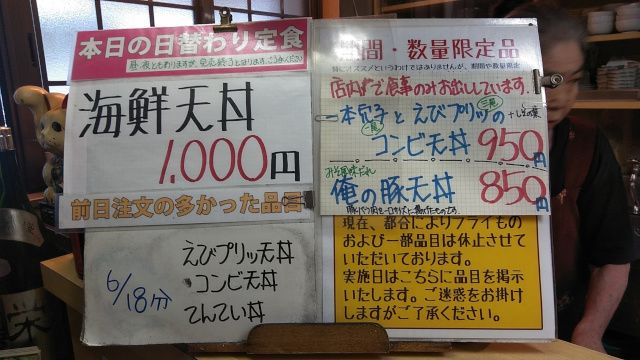 本日の日替わり定食
昼夜ともありますが、完売終了となります。ご了承ください
海鮮天丼
1,000円
前日注文の多かった品目
6/18分
えびプリッ天丼
コンビ天丼
てんてい丼
期間・数量限定品
特にオススメというわけではありませんが、期間や数量限定
店内で食事のみお出ししています。
本穴子とえびプリッの
コンビ天丼 950円
みそ風味だれ
俺の豚天丼 850円
現在、都合によりフライもの
および一部品目は休止させて
いただいております。
実施日はこちらに品目を掲示
いたします。ご迷惑をお掛け
しますがご了承ください。